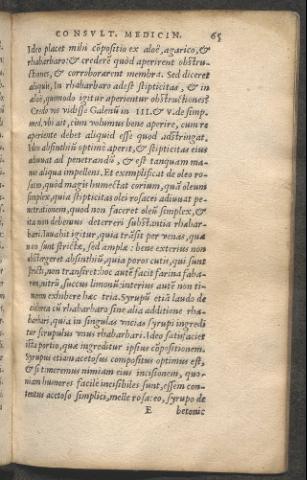 CONSVLT. MEDICIN. 65
Ideo placet mihi cõpositio ex aloë, agarico, &
rhabarbaro: & crederẽ quòd aperirent obstru-
ctiones, & corroborarent membra. Sed diceret
aliquis, In rhabarbaro adest stipticitas, & in
aloë, quomodo igitur aperientur obstructiones?
Credo vos vidisse Galenũ in III. & V. de simp.
med. vbi ait, cùm volumus bene aperire, cum re
aperiente debet aliquid esse quod adstringat,
Ideo absinthiũ optimè aperit, & stipticitas eius
adiuuat ad penetrandũ, & est tanquam ma-
nus aliqua impellens. Et exemplificat de oleo ro-
saceo, quòd magis humectat corium, quã oleum
simplex, quia stipticitas olei rosacei adiuuat pe-
netrationem, quod non faceret oleũ simplex, &
ita non debemus deterreri substantia rhabar-
bari. Iuuabit igitur, quia trãsit per venas, quæ
non sunt strictæ, sed amplæ: bene exterius non
abstergeret absinthiũ, quia poros cutis, qui sunt
stricti, non transiret: hoc autẽ facit farina faba-
rum, nitrũ, succus limonũ: interius autẽ non ti-
merem exhibere hæc tria. Syrupũ etiã laudo de
cichorea cũ rhabarbaro sine alia additione rha-
barbari, quia in singulas vncias syrupi ingredi
tur scrupulus vnus rhabarbari. Ideo satisfaciet
ista portio, quæ ingreditur ipsius cõpositionem.
Syrupus etiam acetosus compositus optimus est,
& si timeremus nimiam eius incisionem, quo-
niam humores facilè incisibiles sunt, essem con-
tentus acetoso simplici, melle rosaceo, syrupo de
E betonic